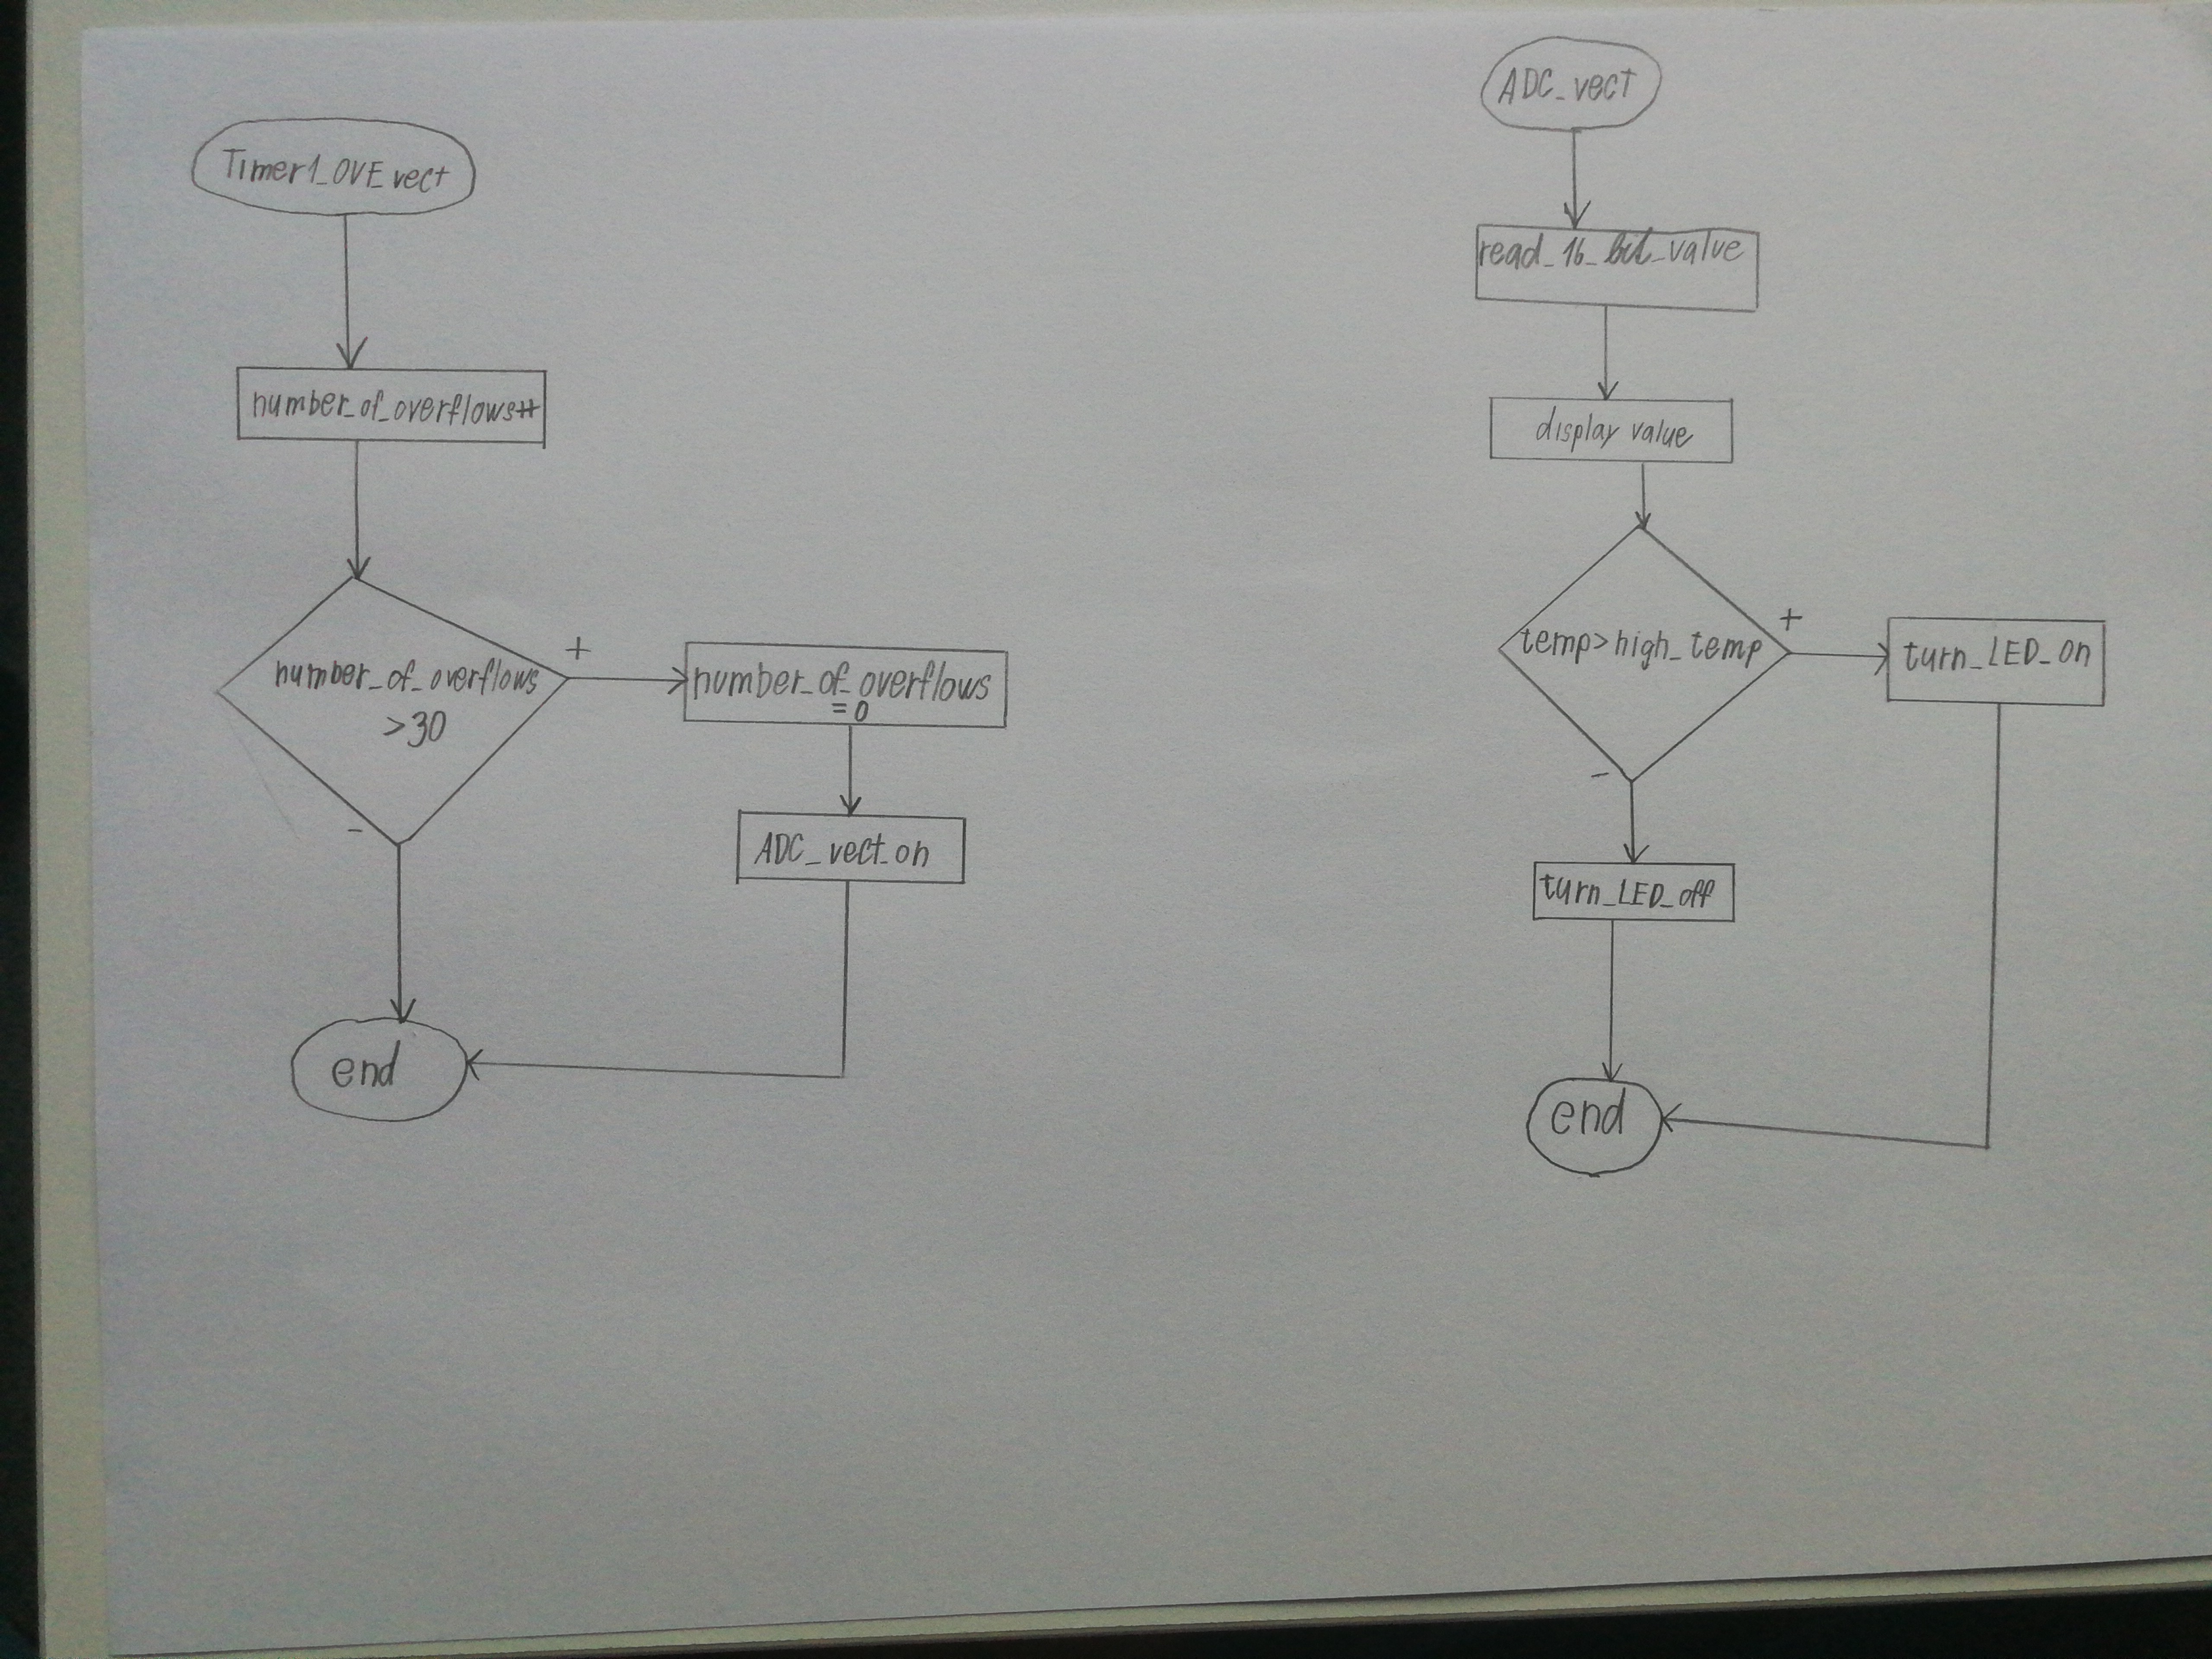 Timer1_OVF_vect
number_of_overflows++
number_of_overflows
>30
+
-
number_of_overflows
=0
ADC_vect_on
end
ADC_vect
read_16_bit_value
display value
temp>high_temp
+
-
turn_LED_on
turn_LED_off
end